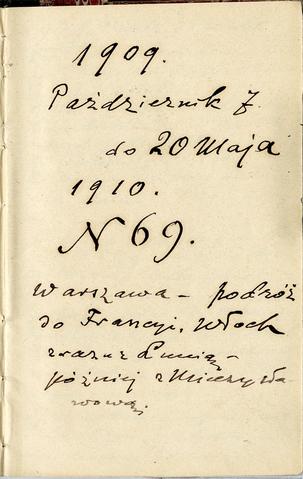 1909.
Październik 7.
do 20 Maja
1910.
N 69.
Warszawa – podróż
do Francyi, Włoch
wraz z Lunią –
później z Mieczysła
wową.